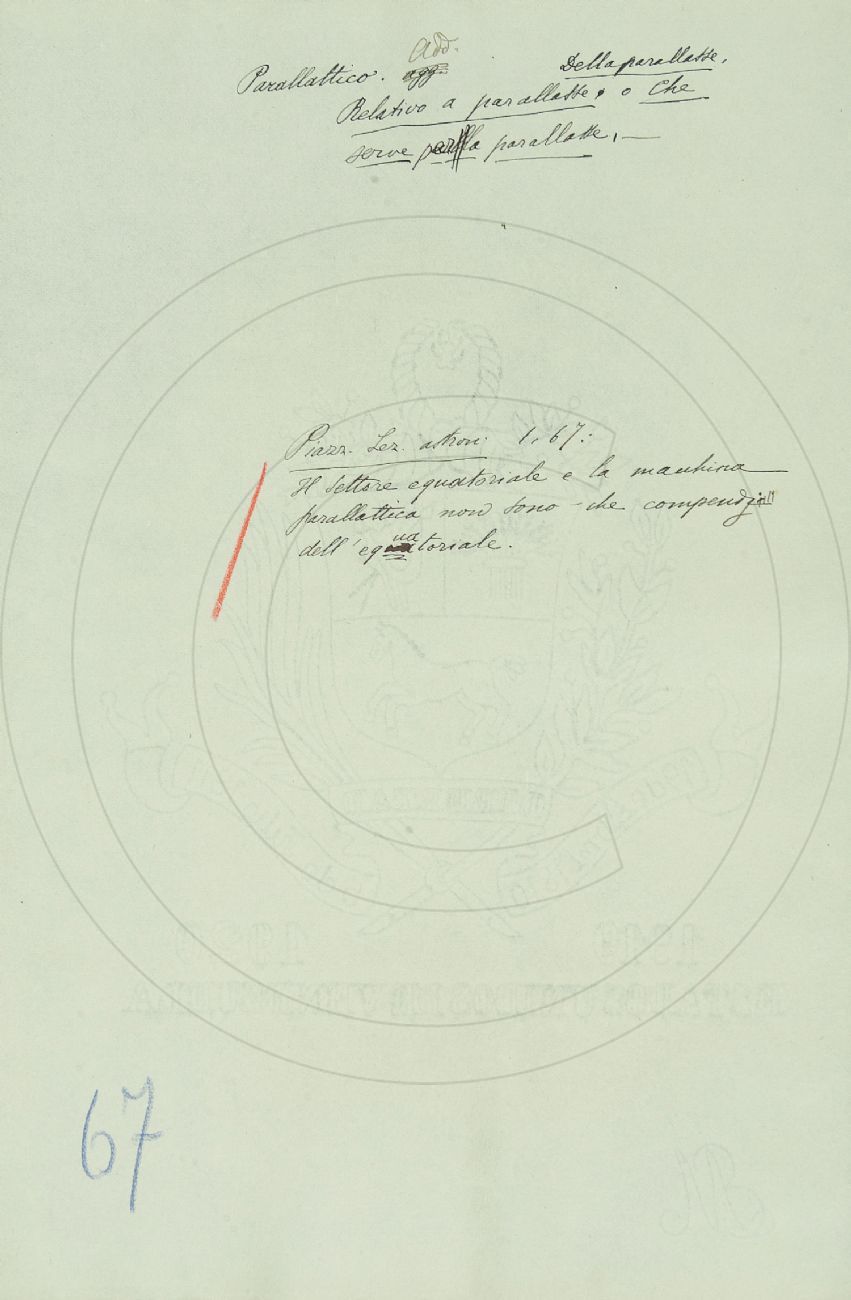 Add.
Parallattico. agg. Della parallasse,
Relativo a parallasse, o che
serve alla parallasse. —
Piazz. Lez. astron. 1, 67:
Il settore equatoriale e la macchina
parallattica non sono che compendj
dell'equatoriale.
67